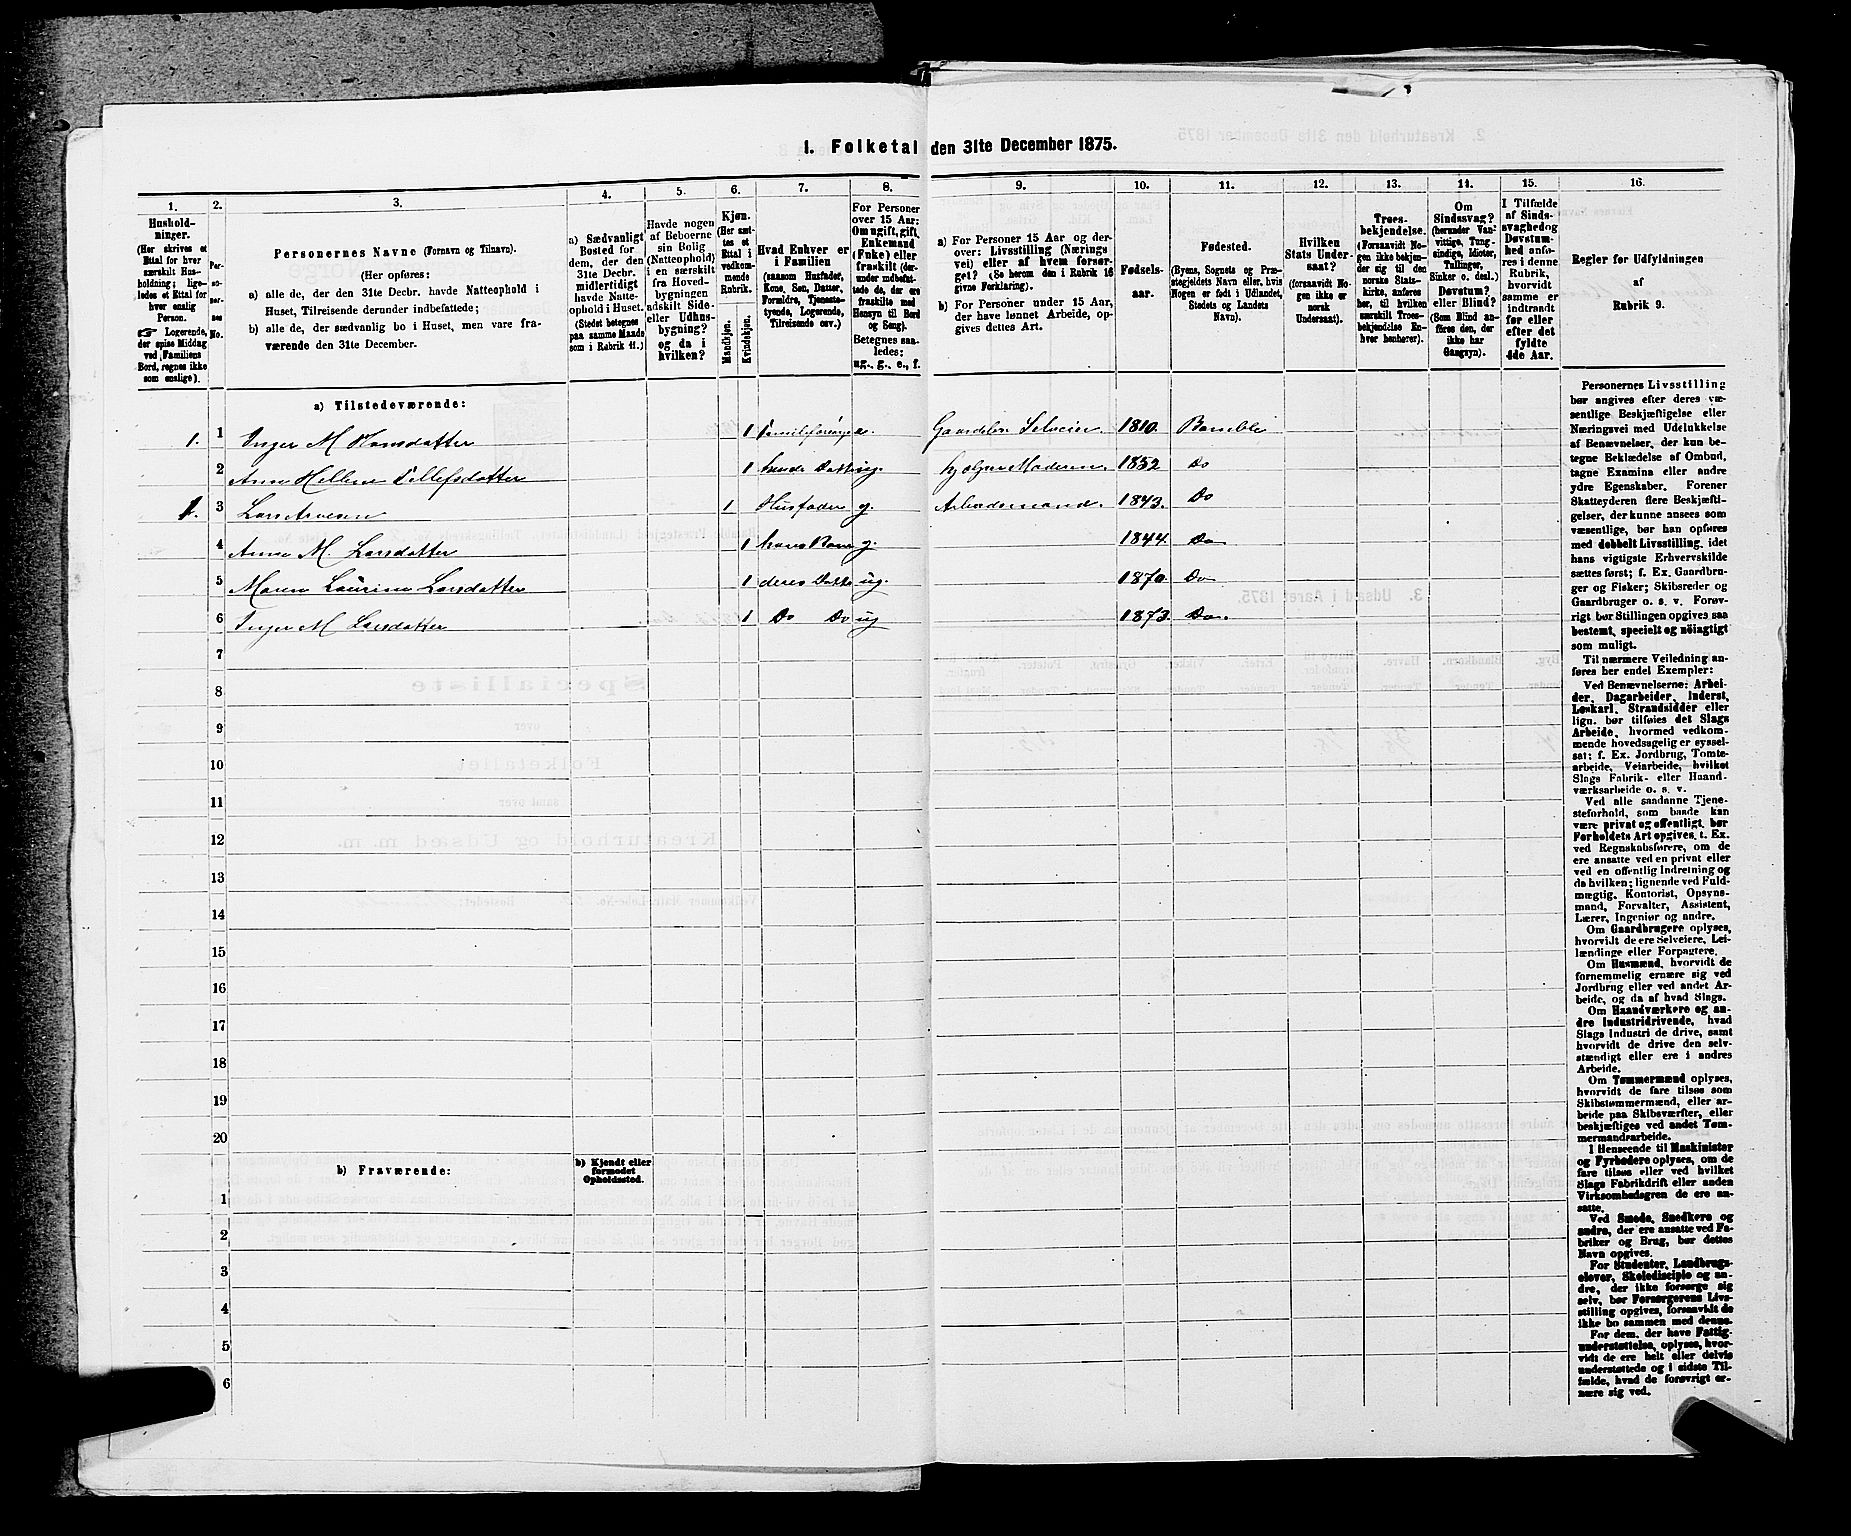 1. Folketal den 31te December 1875.
1.
2.
3.
4.
5.
6.
7.
8.
9.
10.
11.
12.
13.
14.
15.
16.
Hushold-
ninger.
(Her skrives et
Ettal for hver
særskilt Hus-
holdning; lige-
ledes et Ettal for
hver enslig
Person.
Logerende,
der spise Middag
ved Familiens
Bord, regnes ikke
som enslige).
Per-
so-
ner-
nes
No.
Personernes Navne (Fornavn og Tilnavn).
(Her opføres:
a) alle de, der den 31te Decbr. havde Natteophold i
Huset, Tilreisende derunder indbefattede;
b) alle de, der sædvanlig bo i Huset, men vare fra-
værende den 31te December.
a) Sædvanligt
Bosted for
dem, der den
31te Decbr.
midlertidigt
havde Natte-
ophold i Huset.
(Stedet betegnes
paa samme Maade
som i Rubrik 11.)
Havde nogen
af Beboerne
sin Bolig
(Natteophold)
i en særskilt
fra Hoved-
bygningen
adskilt Side-
eller Udhus-
bygning?
og da i
hvilken?
Kjøn.
(Her sæt-
tes et
Ettal i
vedkom-
mende
Rubrik.
Mandkjøn.
Kvindekjøn.
Hvad Enhver er
i Familien
(saasom Husfader,
Kone, Søn, Datter,
Forældre, Tjeneste-
tyende, Logerende,
Tilreisende osv.)
For Personer
over 15 Aar:
Om ugift, gift,
Enkemand
(Enke) eller
fraskilt (der-
under indbefat-
tede de, der ere
fraskilte med
Hensyn til Bord
og Seng).
Betegnes saa-
ledes:
ug., g., e., f.
a) For Personer 15 Aar og der-
over: Livsstilling (Nærings-
vei) eller af hvem forsør-
get? (Se herom den i Rubrik 16
givne Forklaring).
b) For Personer under 15 Aar,
der have lønnet Arbeide, op-
gives dettes Art.
Fødsels-
aar.
Fødested.
(Byens, Sognets og Præ-
stegjeldets Navn eller, hvis
Nogen er født i Udlandet,
Stedets og Landets
Navn).
Hvilken
Stats Under-
saat?
(forsaavidt No-
gen ikke er
norsk
Undersaat).
Troes-
bekjendelse.
(Forsaavidt No-
gen ikke bekjen-
der sig til den
norske Stats-
kirke, anføres
her, til hvilken
særskilt Troes-
bekjendelse En-
hver henhører).
Om
Sindssvag?
(herunder Van-
vittige, Tung-
sindige, Idioter,
Tullinger,
Sinker o. desl.)
Døvstum?
eller Blind?
(Som Blind an-
føres den, der
ikke har
Gangsyn).
I Tilfælde
af Sinds-
svaghed og
Døvstum-
hed anfø-
res i denne
Rubrik,
hvorvidt
samme er
indtraadt
før eller
efter det
fyldte
4de Aar.
Regler for Udfyldningen
af
Rubrik 9.
a) Tilstedeværende:
1. 1 Inger M Hansdatter 1 e. Gaardeier Selveier. 1810. Bamble
2 Ane Hellene Tellefsdatter 1 hendes Datter ug. hjelper Moderen. 1852 Do
1. 3 Lars Arvesen 1 Husfader g. Arbeidsmand. 1843. Do
4 Anne M. Larsdatter 1 hans Kone g. 1844. Do
5 Maren Laurine Larsdatter 1 deres Datter ug. 1870. Do
6 Inger M Larsdatter 1 Do Do ug 1873. Do.
7
8
9
10
11
12
13
14
15
16
17
18
19
20
b) Fraværende:
b) Kjendt eller
formodet
Opholdssted.
1
2
3
4
5
6
Personernes Livsstilling
bør angives efter deres væ-
sentlige Beskjæftigelse eller
Næringsvei med Udelukkelse
af Benævnelser, der kun be-
tegne Beklædelse af Ombud,
tagne Examina eller andre
ydre Egenskaber. Forener
Skatteyderen flere Beskjæfti-
gelser, der kunne ansees som
væsentlige, bør han opføres
med dobbelt Livsstilling, idet
hans vigtigste Erhvervskilde
sættes først; f. Ex. Gaardbru-
ger og Fisker; Skibsreder og
Gaardbruger o. s. v. Forøv-
rigt bør Stillingen opgives saa
bestemt, specielt og nöiagtigt
som muligt.
Til nærmere Veiledning an-
føres her endel Exempler:
Ved Benævnelserne: Arbei-
der, Dagarbeider, Inderst,
Løskarl, Strandsidder eller
lign. bør tilføies det Slags
Arbeide, hvormed vedkom-
mende hovedsagelig er syssel-
sat; f. Ex. Jordbrug, Tomte-
arbeide, Veiarbeide, hvilket
Slags Fabrik- eller Haand-
værksarbeide o. s. v.
Ved alle saadanne Tjene-
steforhold, som baade kan
være privat og offentligt, bør
Forholdets Art opgives, t. Ex.
ved Regnskabsførere, om de
ere ansatte ved en privat eller
ved en offentlig Indretning og
da hvilken; lignende ved Fuld-
mægtig, Kontorist, Opsyns-
mand, Forvalter, Assistent,
Lærer, Ingeniør og andre.
Om Gaardbrugere oplyses,
hvorvidt de ere Selveiere, Lei-
lændinge eller Forpagtere.
Om Husmænd, hvorvidt de
fornemmelig ernære sig ved
Jordbrug eller ved andet Ar-
beide, og da af hvad Slags.
Om Haandværkere og an-
dre Industridrivende, hvad
Slags Industri de drive, samt
hvorvidt de drive den selv-
stændigt eller ere i andres
Arbeide.
Om Tømmermænd oplyses,
hvorvidt de fare tilsøs som
Skibstømmermænd, eller ar-
beide paa Skibsværfter, eller
beskjæftiges ved andet Tøm-
mermandarbeide.
I Henseende til Maskinister
og Fyrbødere oplyses, om de
fare tilsøs eller ved hvilket
Slags Fabrikdrift eller anden
Virksomhedsgren de ere an-
satte.
Ved Smede, Snedkere og
andre, der ere ansatte ved Fa-
briker og Brug, bør dettes
Navn opgives.
For Studenter, Landbrugs-
elever, Skoledisciple og an-
dre, der ikke forsørge sig
selv, bør Forsørgerens Livs-
stilling opgives, forsaavidt de
ikke bo sammen med denne.
For dem, der have Fattig-
understøttelse, oplyses, hvor-
vidt de ere helt eller delvis
understøttede og i sidste Til-
fælde, hvad de forøvrigt er-
nære sig ved.